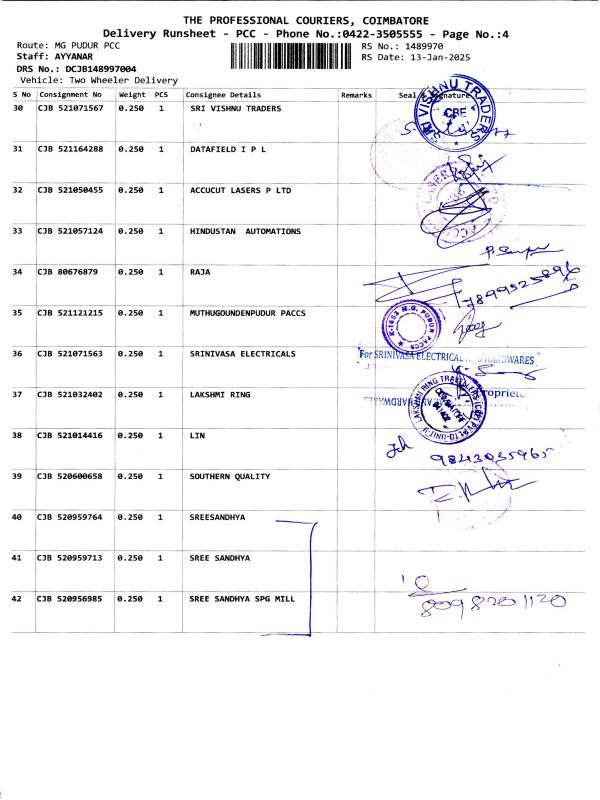 THE PROFESSIONAL COURIERS, COIMBATORE
Delivery Runsheet - PCC - Phone No.:0422-3505555 - Page No.:4
Route: MG PUDUR PCC
RS No.: 1489970
Staff: AYYANAR
RS Date: 13-Jan-2025
DRS No.: DCJB148997004
Vehicle: Two Wheeler Delivery
S No Consignment No Weight PCS Consignee Details Remarks Seal & Signature
30 CJB 521071567 0.250 1 SRI VISHNU TRADERS
SRI VISHNU TRADERS
CBE
31 CJB 521164288 0.250 1 DATAFIELD I P L
32 CJB 521050455 0.250 1 ACCUCUT LASERS P LTD
33 CJB 521057124 0.250 1 HINDUSTAN AUTOMATIONS
34 CJB 80676879 0.250 1 RAJA
7899525896
35 CJB 521121215 0.250 1 MUTHUGOUNDENPUDUR PACCS
K-1653 M.G. PUDUR PACCS
36 CJB 521071563 0.250 1 SRINIVASA ELECTRICALS
For SRINIVASA ELECTRICAL HARDWARES
37 CJB 521032402 0.250 1 LAKSHMI RING
LAKSHMI RING TRAVELLERS (CBE) P LTD-UNIT-II
38 CJB 521014416 0.250 1 LIN
9843035965
39 CJB 520600658 0.250 1 SOUTHERN QUALITY
40 CJB 520959764 0.250 1 SREESANDHYA
41 CJB 520959713 0.250 1 SREE SANDHYA
42 CJB 520956985 0.250 1 SREE SANDHYA SPG MILL
8098201120